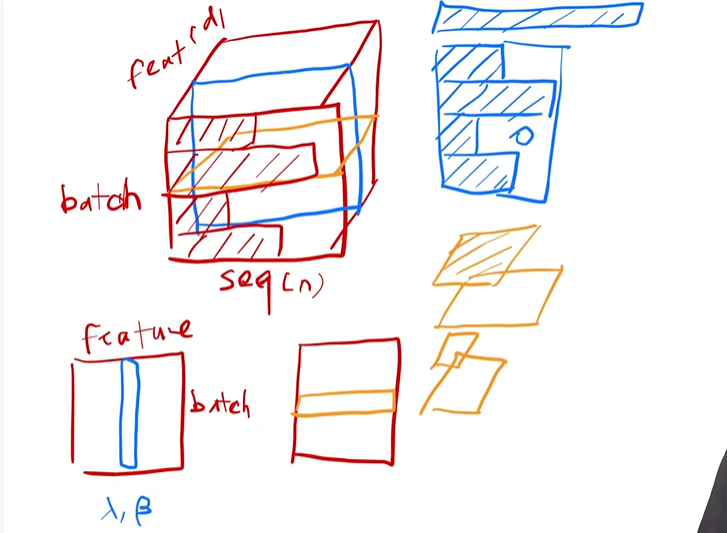 feat (d)
batch
seq (n)
feature
batch
λ, β
0